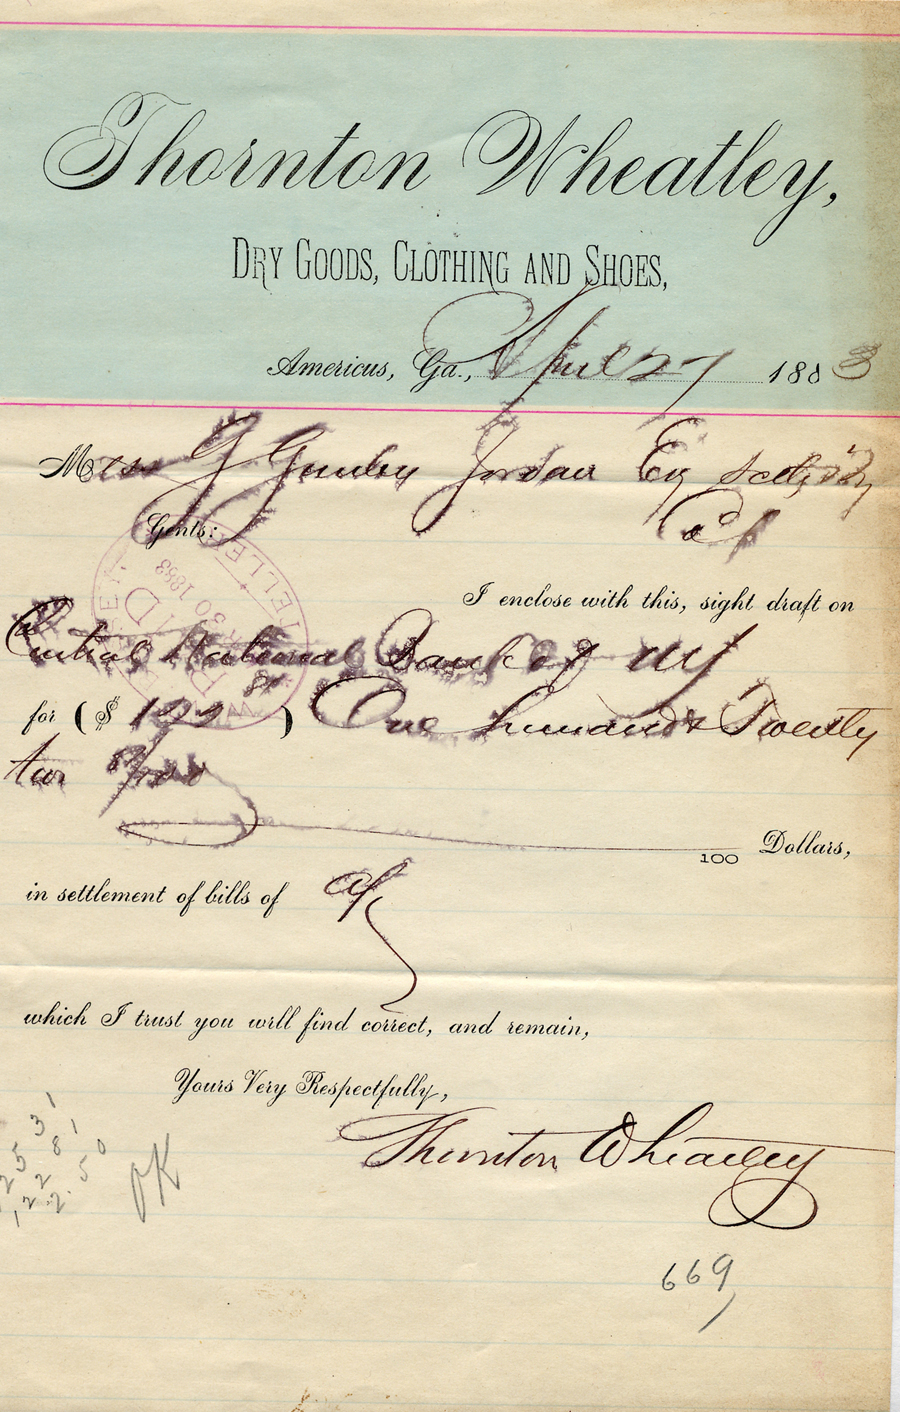 Thornton Wheatley,
DRY GOODS, CLOTHING AND SHOES,
Americus, Ga., April 27 1883
Mess
Gents:
I enclose with this, sight draft on
Central National Bank of NY
for ($ 122 81) One hunand & Twenty
two 81/100
100 Dollars,
in settlement of bills of a/c
which I trust you will find correct, and remain,
Yours Very Respectfully,
Thornton Wheatley
125 31
122 81
2.50
OK
669